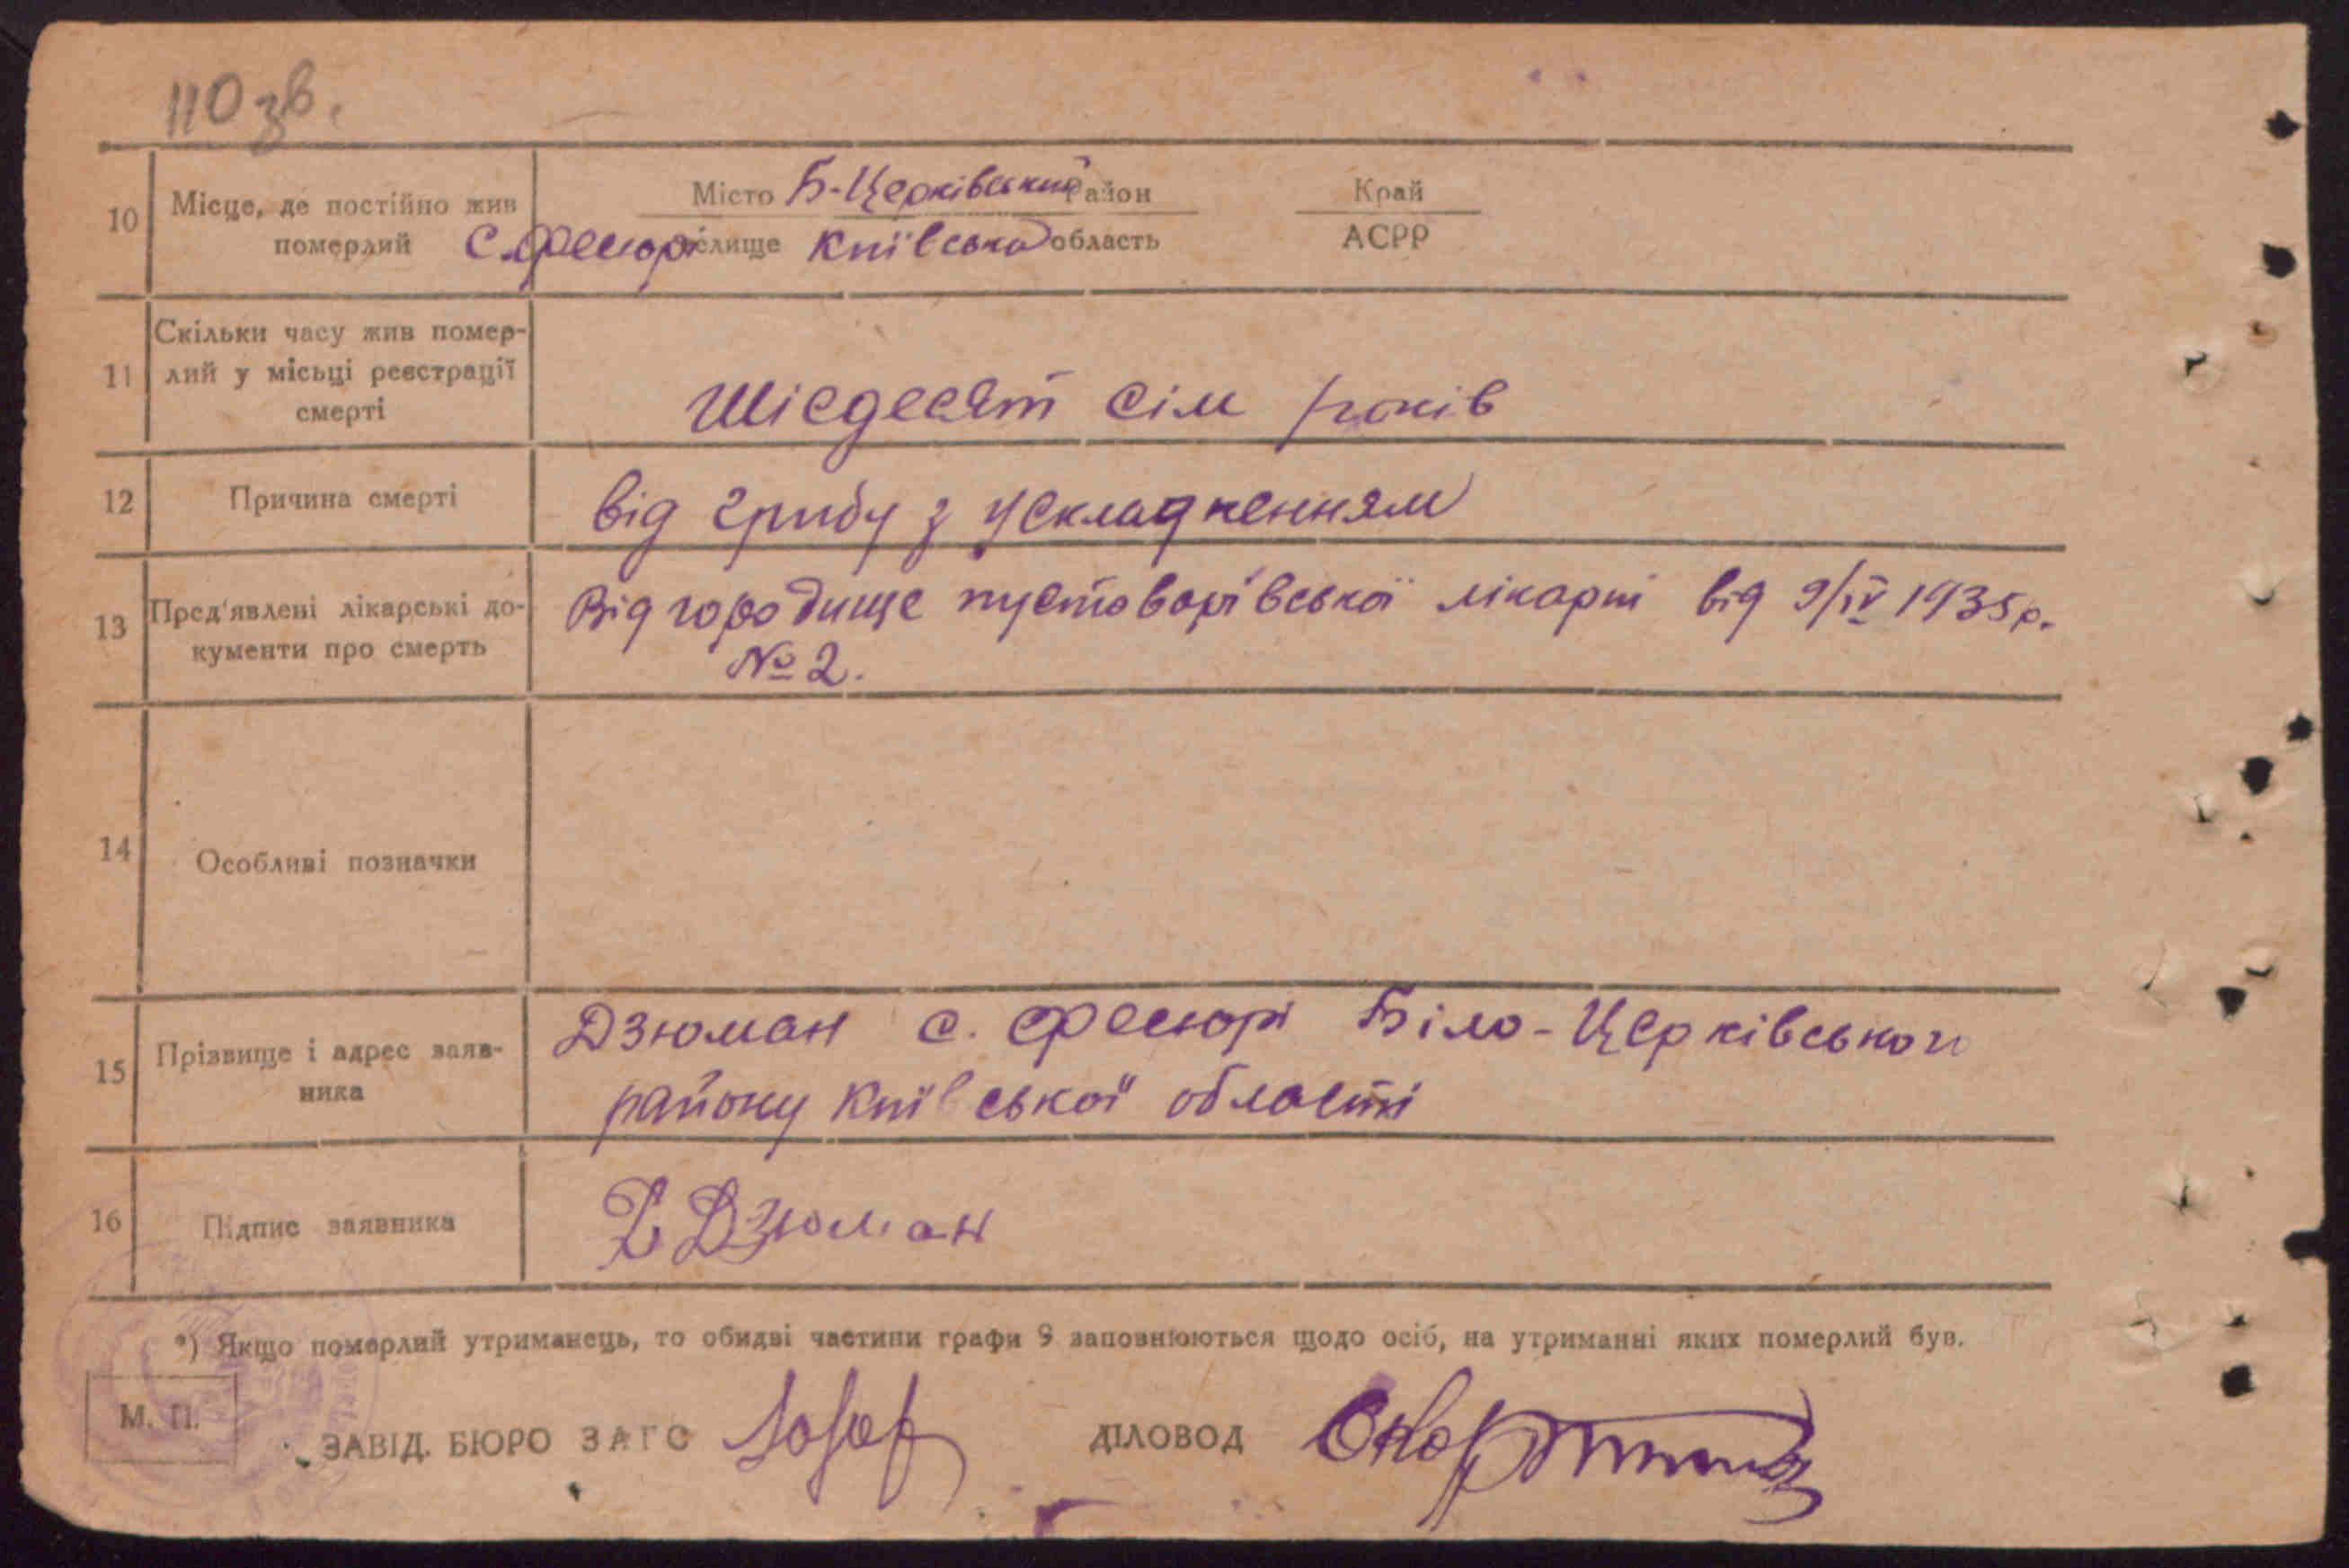 110 зв.
10 Місце, де постійно жив померлий
Місто Б-Церківський район Край
С. Фесюрі селище Київська область АСРР
11 Скільки часу жив помер-
лий у місьці реєстрації
смерті
Шісдесят сім років
12 Причина смерті
від грибу з ускладненням
13 Пред'явлені лікарські до-
кументи про смерть
Від городище пустоварівської лікарні від 9/IV 1935р.
№ 2.
14 Особливі позначки
15 Прізвище і адрес заяв-
ника
Дзюман с. Фесюрі Біло-Церківського
району Київської області
16 Підпис заявника
Дзюман
*) Якщо померлий утриманець, то обидві частини графи 9 заповнюються щодо осіб, на утриманні яких померлий був.
М. П.
ЗАВІД. БЮРО ЗАГС ДІЛОВОД